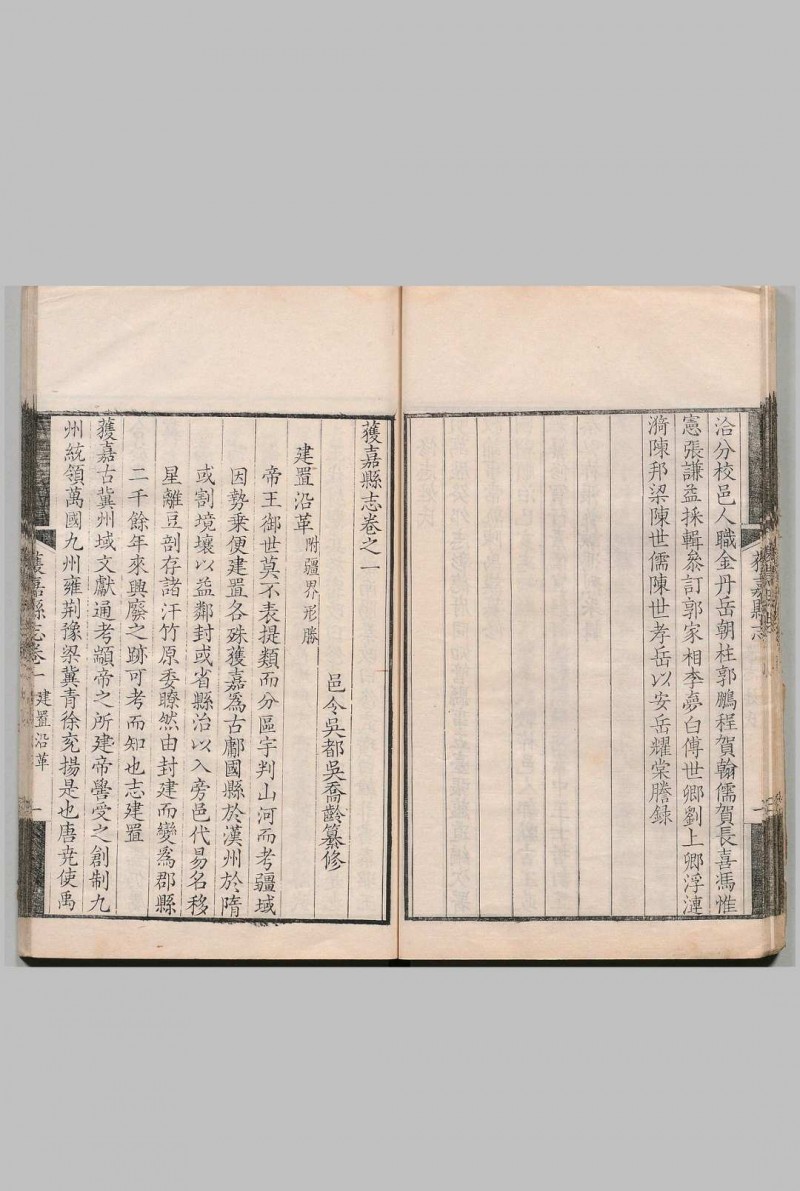 洽分校邑人職金丹岳朝柱郭鵬程賀翰儒賀長喜馮惟
憲張謙益採輯叅訂郭家相李夢白傅世卿劉上卿浮漣
漪陳邦梁陳世儒陳世孝岳以安岳耀棠謄録
獲嘉縣志卷之一
邑令吳都吳喬齡纂修
建置沿革附疆界形勝
帝王御世莫不表提類而分區宇判山河而考疆域
因勢乗便建置各殊獲嘉爲古鄘國縣於漢州於隋
或割境壤以益鄰封或省縣治以入旁邑代易名移
星離豆剖存諸汗竹原委瞭然由封建而變爲郡縣
二千餘年來興廢之跡可考而知也志建置
獲嘉古冀州域文獻通考顓帝之所建帝嚳受之創制九
州統領萬國九州雍荆豫梁冀青徐兖揚是也唐尭使禹
獲嘉縣志卷一 建置沿革 一